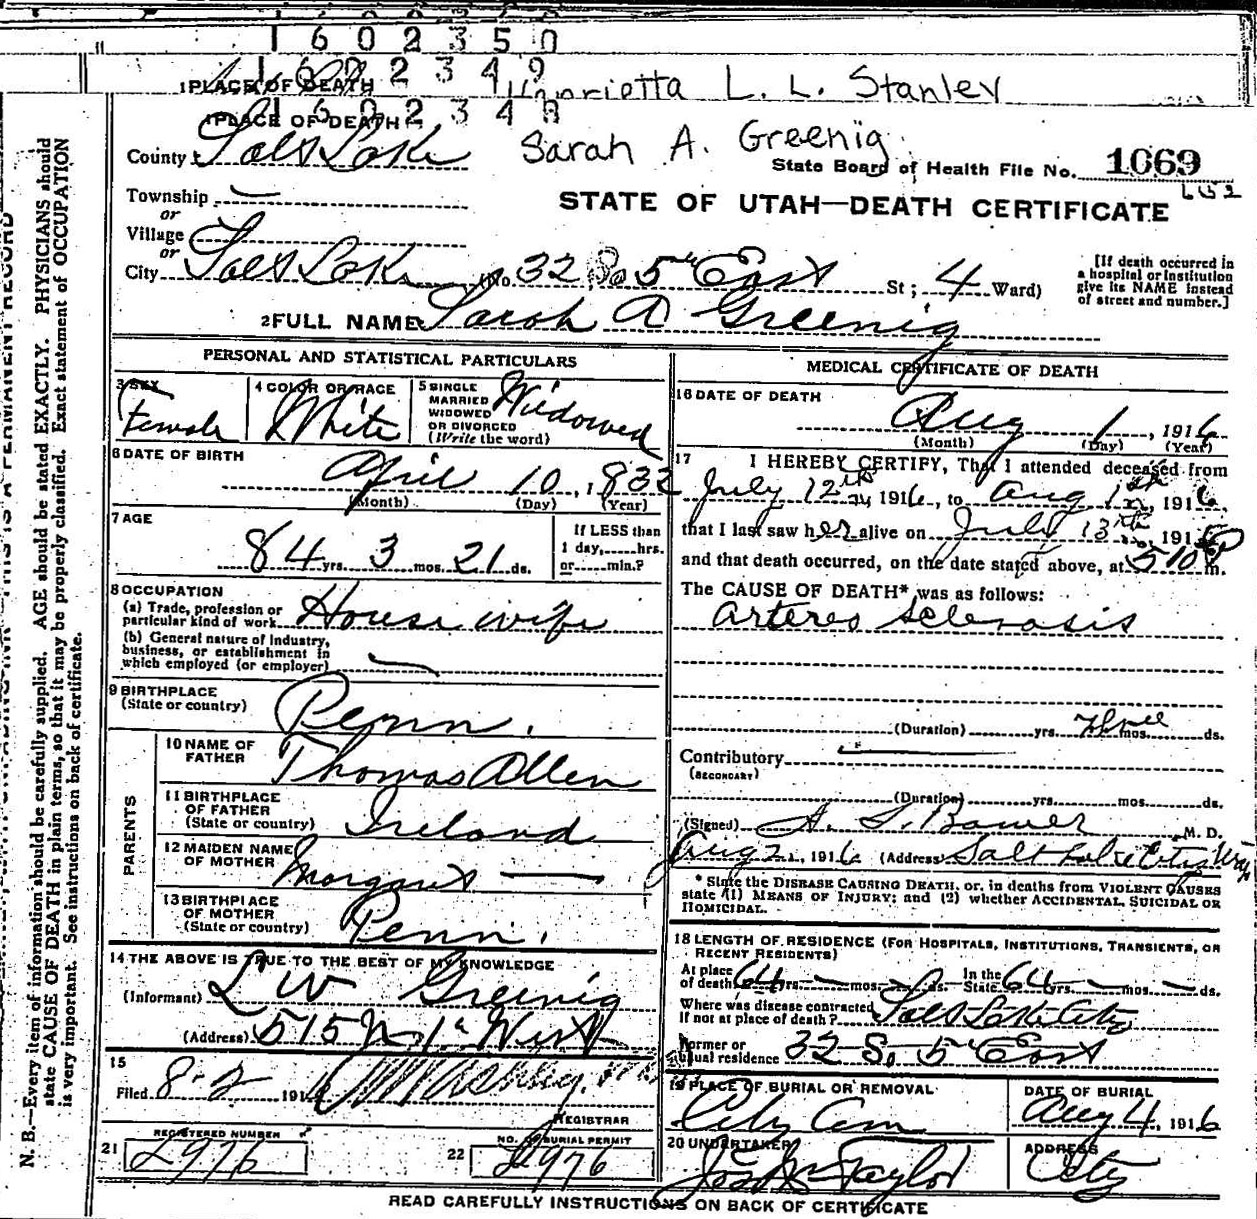 1 6 0 2 3 5 0
1 6 0 2 3 4 9
1 PLACE OF DEATH Henrietta L. L. Stanley
1 6 0 2 3 4 8
1 PLACE OF DEATH
County Salt Lake Sarah A. Greenig
State Board of Health File No. 1069
Township —
or
Village
or
STATE OF UTAH—DEATH CERTIFICATE
City Salt Lake (No. 32 So 5" East St; 4 Ward)
[If death occurred in a hospital or institution give its NAME instead of street and number.]
2 FULL NAME Sarah A Greenig
PERSONAL AND STATISTICAL PARTICULARS
3 SEX Female
4 COLOR OR RACE White
5 SINGLE MARRIED WIDOWED OR DIVORCED (Write the word) Widowed
6 DATE OF BIRTH April 10, 1832
(Month) (Day) (Year)
7 AGE 84 yrs. 3 mos. 21 ds.
If LESS than 1 day, hrs. or min.?
8 OCCUPATION
(a) Trade, profession or particular kind of work House wife
(b) General nature of industry, business, or establishment in which employed (or employer) —
9 BIRTHPLACE (State or country) Penn.
PARENTS
10 NAME OF FATHER Thomas Allen
11 BIRTHPLACE OF FATHER (State or country) Ireland
12 MAIDEN NAME OF MOTHER Margaret —
13 BIRTHPLACE OF MOTHER (State or country) Penn.
14 THE ABOVE IS TRUE TO THE BEST OF MY KNOWLEDGE
(Informant) L W Greenig
(Address) 515 N 1" West
15
Filed 8-2 1916
REGISTRAR
21 REGISTERED NUMBER 2976
22 NO. OF BURIAL PERMIT 2976
MEDICAL CERTIFICATE OF DEATH
16 DATE OF DEATH
Aug 1, 1916
(Month) (Day) (Year)
17 I HEREBY CERTIFY, That I attended deceased from
July 12th, 1916, to Aug 1st, 1916,
that I last saw her alive on July 13th, 191
and that death occurred, on the date stated above, at 510 P m.
The CAUSE OF DEATH* was as follows:
Arterio Sclerosis
(Duration) yrs. mos. ds.
Contributory —
(SECONDARY)
(Duration) yrs. mos. ds.
(Signed) A. S. Bower M. D.
Aug 2, 1916 (Address) Salt Lake City Utah
* State the DISEASE CAUSING DEATH, or, in deaths from VIOLENT CAUSES
state (1) MEANS OF INJURY; and (2) whether ACCIDENTAL, SUICIDAL OR
HOMICIDAL.
18 LENGTH OF RESIDENCE (FOR HOSPITALS, INSTITUTIONS, TRANSIENTS, OR RECENT RESIDENTS)
At place of death 64 yrs. — mos. — ds. In the State 64 yrs. — mos. — ds.
Where was disease contracted If not at place of death? Salt Lake City
Former or usual residence 32 So. 5" East
19 PLACE OF BURIAL OR REMOVAL City Cem
DATE OF BURIAL Aug 4, 1916
20 UNDERTAKER Jos Wm Taylor
ADDRESS City
READ CAREFULLY INSTRUCTIONS ON BACK OF CERTIFICATE
N. B.—Every item of information should be carefully supplied. AGE should be stated EXACTLY. PHYSICIANS should
state CAUSE OF DEATH in plain terms, so that it may be properly classified. Exact statement of OCCUPATION
is very important. See instructions on back of certificate.